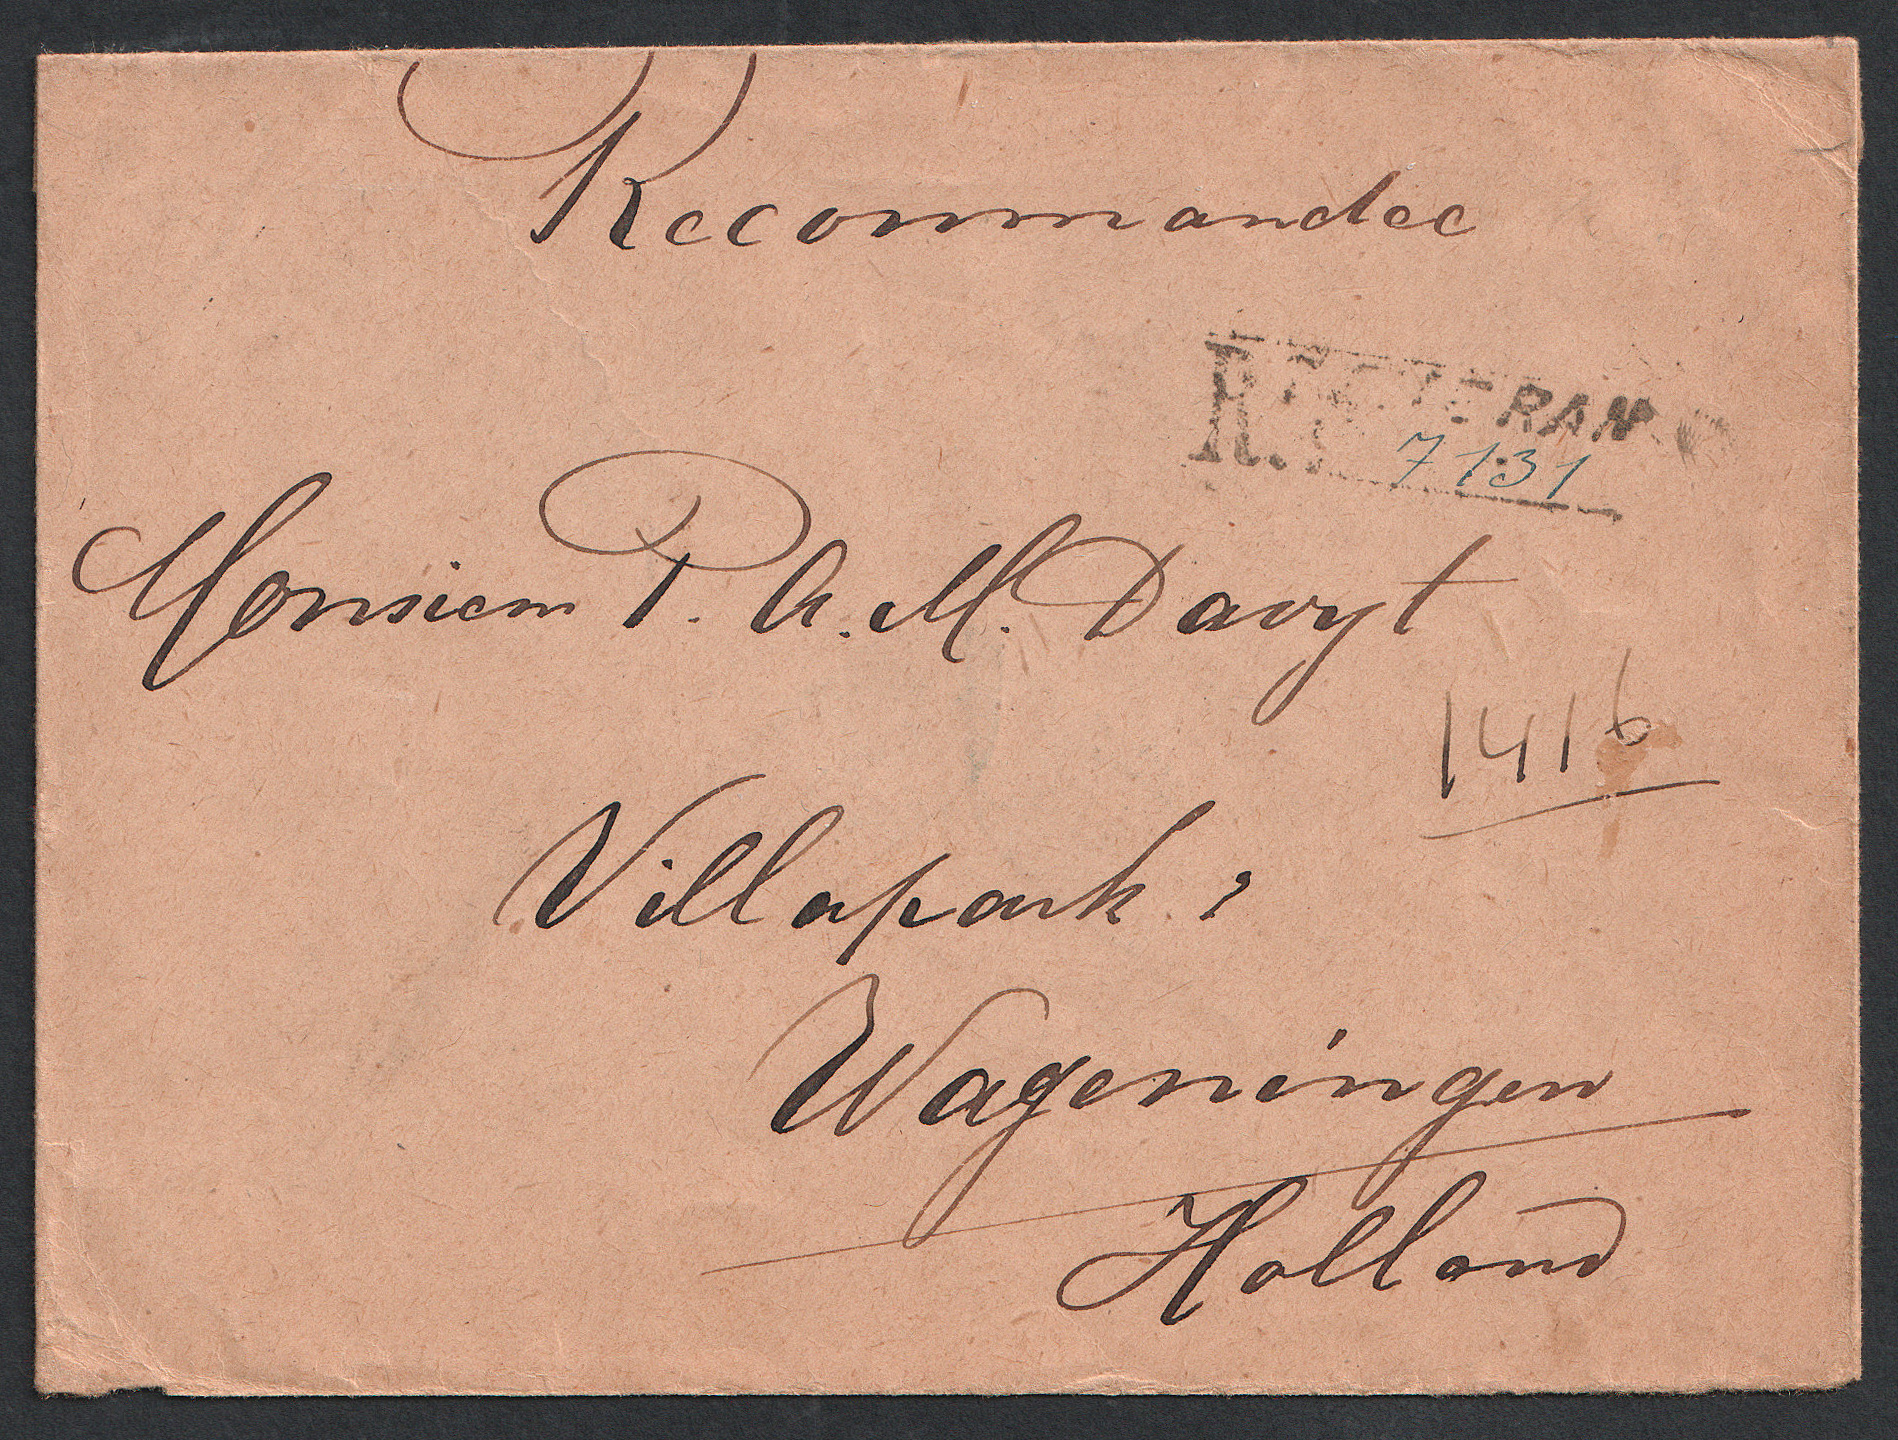 Recommandee
R. TEHERAN
7131
Monsieur P. A. M. Davyt
1416
Villapark :
Wageningen
Holland